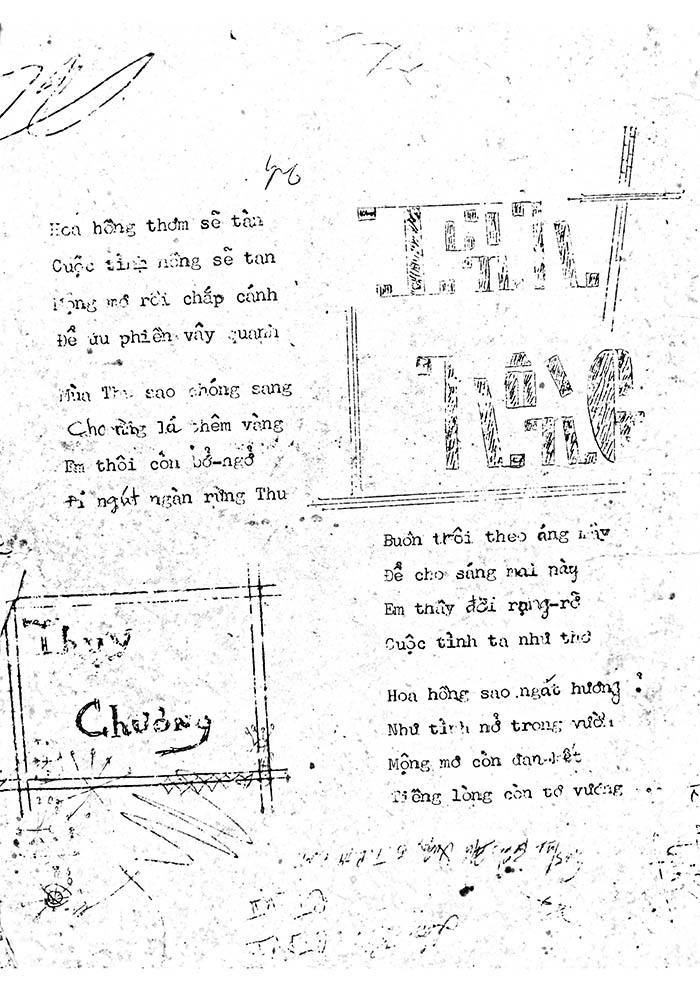 Hoa hồng thơm sẽ tàn
Cuộc tình nồng sẽ tan
Mộng mơ rồi chấp cánh
Để ưu phiền vây quanh
Mùa Thu sao chóng sang
Cho rừng lá thêm vàng
Em thôi còn bở-ngở
Đi ngút ngàn rừng Thu
Thụy
Chương
Buồn trôi theo áng mây
Để cho sáng mai này
Em thấy đời rạng-rỡ
Cuộc tình ta như thơ
Hoa hồng sao ngát hương :
Như tình nở trong vườn
Mộng mơ còn đan-kết
Tiếng lòng còn tơ vướng ...